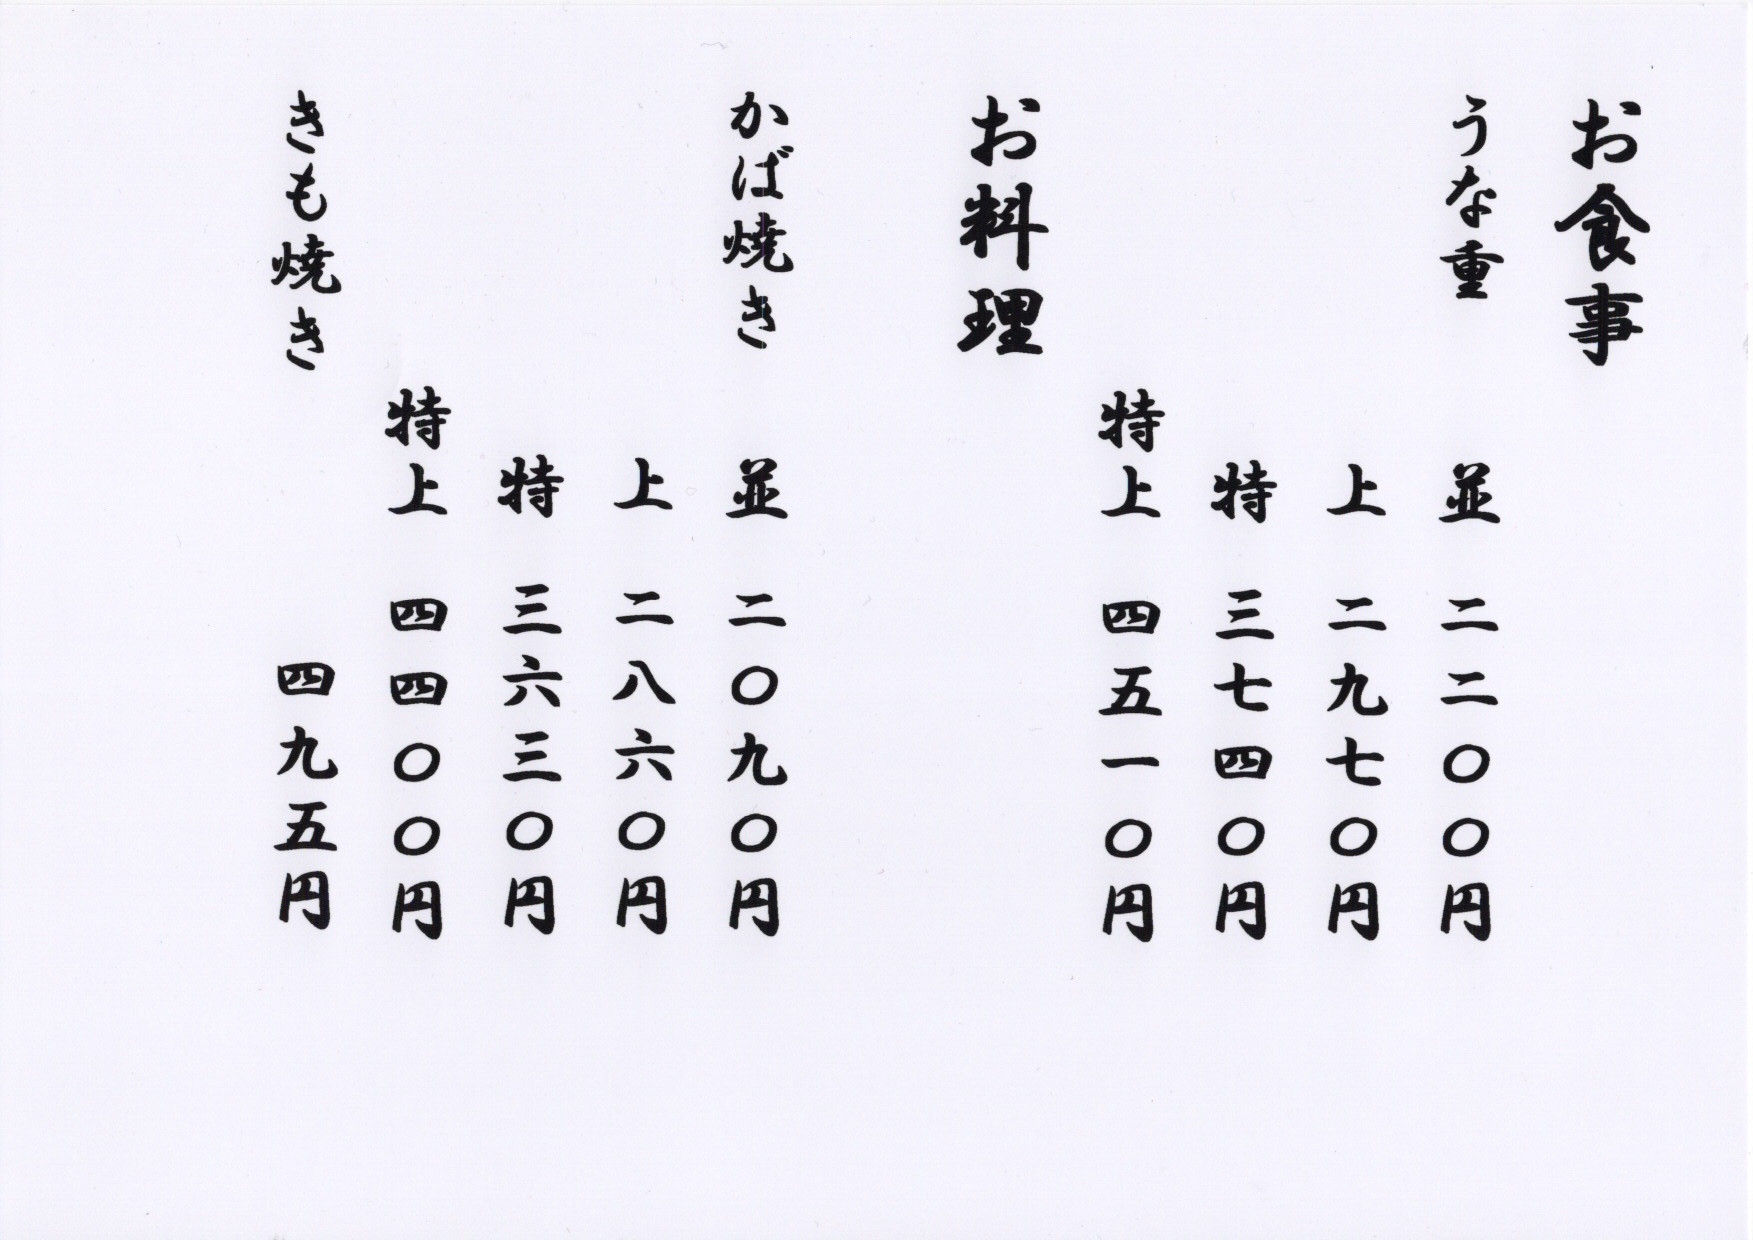 お食事
うな重
並 二二〇〇円
上 二九七〇円
特 三七四〇円
特上 四五一〇円
お料理
かば焼き
並 二〇九〇円
上 二八六〇円
特 三六三〇円
特上 四四〇〇円
きも焼き 四九五円